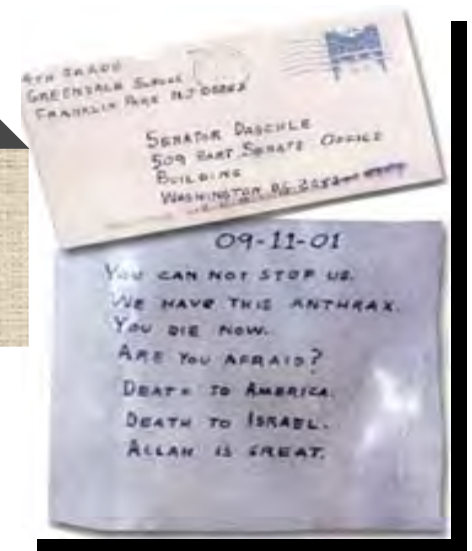 4TH GRADE
GREENDALE SCHOOL
FRANKLIN PARK NJ 08852
SENATOR DASCHLE
509 HART SENATE OFFICE
BUILDING
WASHINGTON D.C. 205
09-11-01
YOU CAN NOT STOP US.
WE HAVE THIS ANTHRAX.
YOU DIE NOW.
ARE YOU AFRAID?
DEATH TO AMERICA.
DEATH TO ISRAEL.
ALLAH IS GREAT.